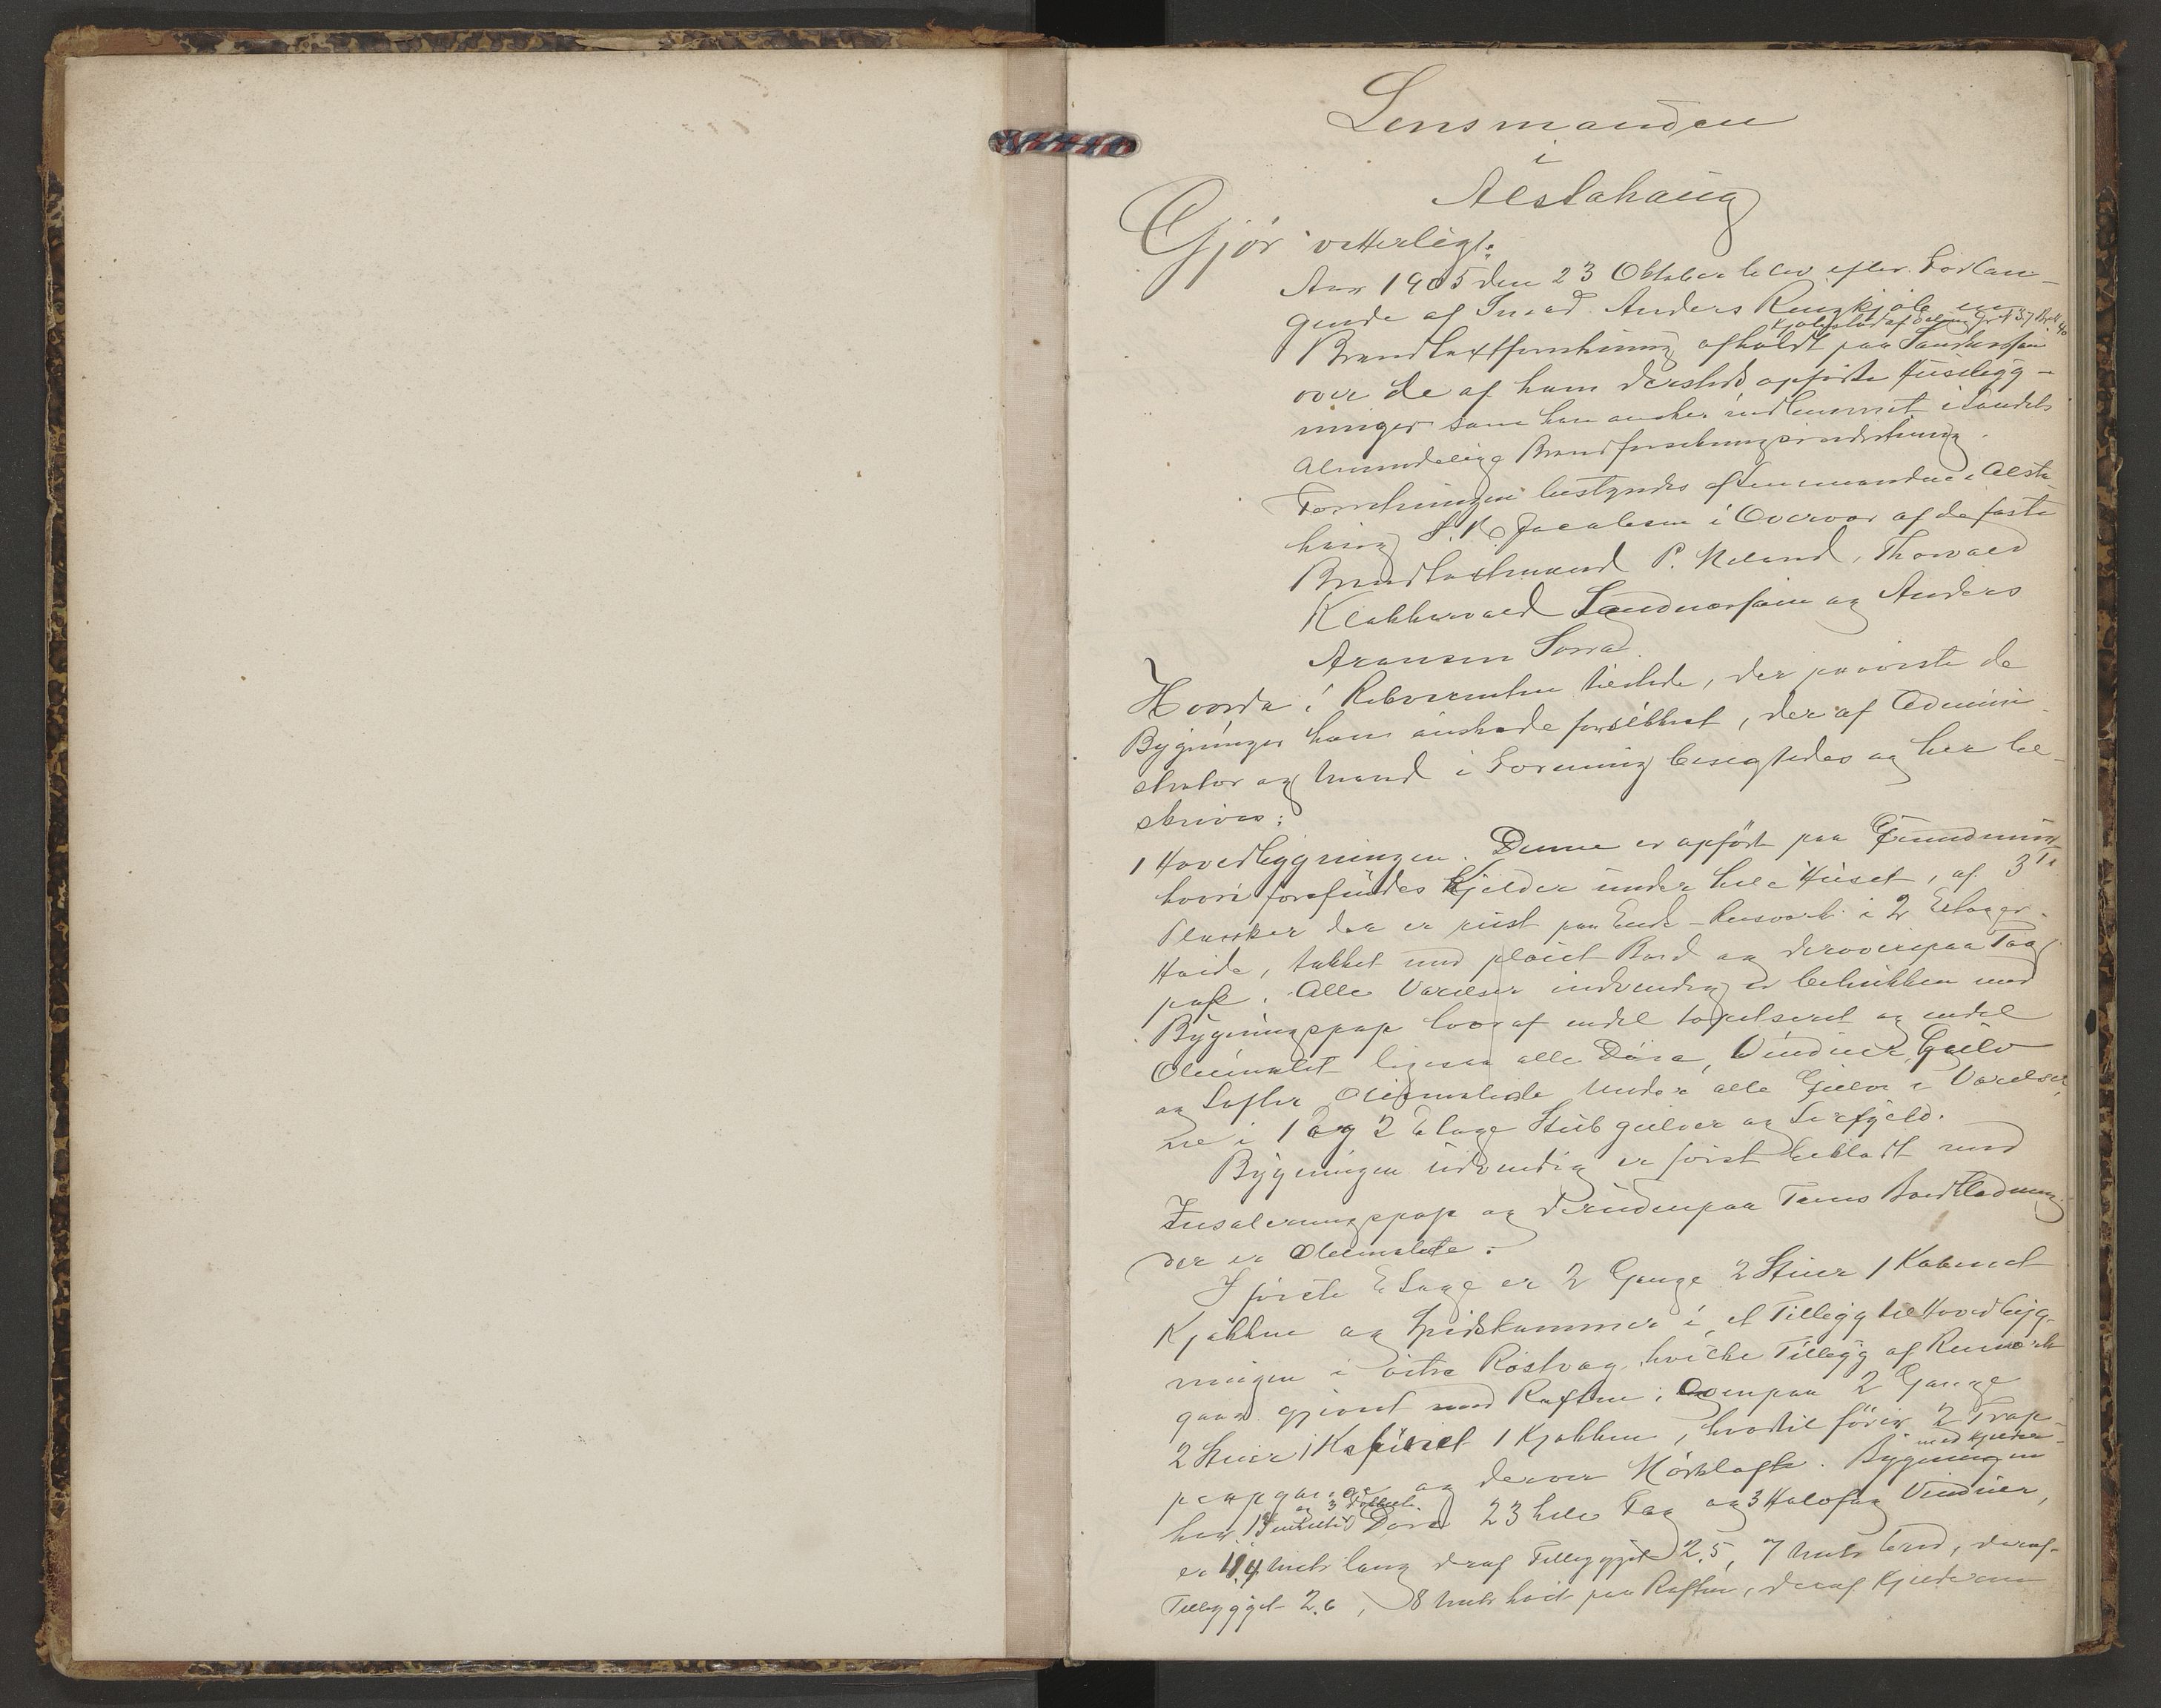 Lensmanden
i
Alstahaug
Gjør vitterligt:
Aar 1905 den 23 Oktober blev efter Forlan-
gende af Anders Ringkjøb en
Kjøbgslad af Gr N 37 Br N 40
Brandtaxtforretning afholdt paa Sandnessjøen
over de af ham dersteds opførte Husbygg-
ninger som han ønsker indlemmet i Landets
Almindelige Brandforsikringsindretning.
Forretningen bestyredes af Lensmanden i Alsta-
haug Jacobsen i Overvær af de faste
Brandtaxtmænd P. Meland, Thorvald
Klokkervold Sandnessjøen og Anders
Aransen Sorra.
Hvorda! Rekvirenten tilstede, der paaviste de
Bygninger han ønskede forsikkret, der af Admini-
strator og Mænd i Forening besigtedes og her be-
skrives:
1 Hovedbygningen. Denne er opført paa Grundmur
hvori forefindes Kjelder under hele Huset, af 3 To
Planker der er reist paa Ende - Reisverk i 2 Etager
Høide, tækket med pløiet Bord og derovenpaa Tag-
pap. Alle Værelser indvendig er betrukken med
Bygningspap hvoraf endel tapetseret og endel
Oliemalet ligesaa alle Døre, Vinduer, Gulv
og Lofter Oliemalede. Under alle Gulve i Værelser-
ne i 1 og 2 Etage Stubgulver og Lerfyld.
Bygningen udvendig er først beklædt med
Insoleringspap og derudenpaa Tems Bordklædning
der er Oliemalede.
I første Etage er 2 Gange 2 Stuer 1 Kabinet
Kjøkken og Spidskammer i et Tillegg til Hovedbyg-
ningen i østre Røstvæg, hvilke Tillegg af Reisverk
gaar gjevnt med Raften; Ovenpaa 2 Gange
2 Stuer 1 Kabinet 1 Kjøkken, hvortil fører 2 Trap-
peopgange og derover Mørkloft. Bygningen
med Kjelder
har 15 enkelte og 3 dobbelte Døre 23 hele Fag og 3 Halvfag Vinduer,
er 11,4 Meter lang deraf Tillegget 2,5, 7 Meter bred, deraf
Tillegget 2,6, 8 Meter høit paa Raften, deraf Kjelderen